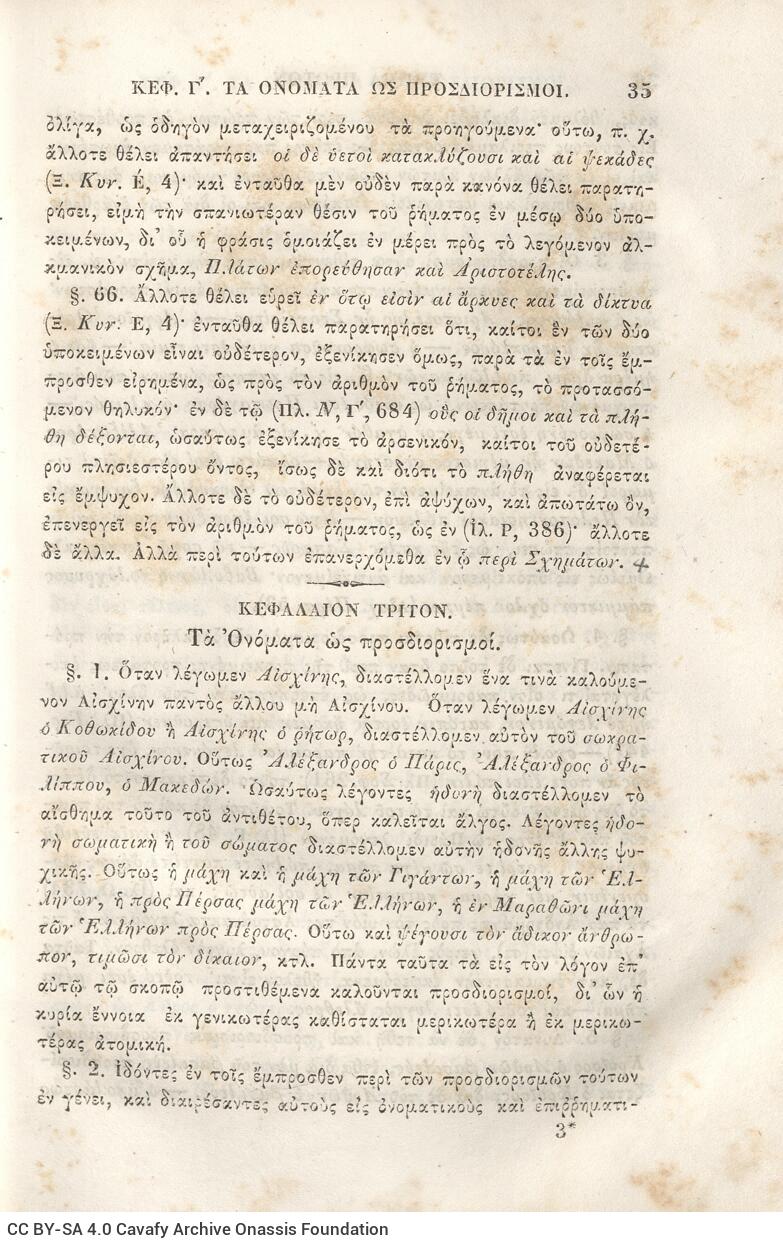 ΚΕΦ. Γ΄. ΤΑ ΟΝΟΜΑΤΑ ΩΣ ΠΡΟΣΔΙΟΡΙΣΜΟΙ. 35
ὀλίγα, ὡς ὁδηγὸν μεταχειριζομένου τὰ προηγούμενα· οὕτω, π. χ.
ἄλλοτε θέλει ἀπαντήσει οἱ δὲ ὑετοὶ κατακλύζουσι καὶ αἱ ψεκάδες
(Ξ. Κυν. Ε, 4)· καὶ ἐνταῦθα μὲν οὐδὲν παρὰ κανόνα θέλει παρατη-
ρήσει, εἰμὴ τὴν σπανιωτέραν θέσιν τοῦ ῥήματος ἐν μέσῳ δύο ὑπο-
κειμένων, δι' οὗ ἡ φράσις ὁμοιάζει ἐν μέρει πρὸς τὸ λεγόμενον ἀλ-
κμανικὸν σχῆμα, Πλάτων ἐπορεύθησαν καὶ Ἀριστοτέλης.
§. 66. Ἄλλοτε θέλει εὑρεῖ ἐν ὅτῳ εἰσὶν αἱ ἄρκυες καὶ τὰ δίκτυα
(Ξ. Κυν. Ε, 4)· ἐνταῦθα θέλει παρατηρήσει ὅτι, καίτοι ἓν τῶν δύο
ὑποκειμένων εἶναι οὐδέτερον, ἐξενίκησεν ὅμως, παρὰ τὰ ἐν τοῖς ἔμ-
προσθεν εἰρημένα, ὡς πρὸς τὸν ἀριθμὸν τοῦ ῥήματος, τὸ προτασσό-
μενον θηλυκόν· ἐν δὲ τῷ (Πλ. Ν, Γ΄, 684) οὓς οἱ δῆμοι καὶ τὰ πλή-
θη δέξονται, ὡσαύτως ἐξενίκησε τὸ ἀρσενικόν, καίτοι τοῦ οὐδετέ-
ρου πλησιεστέρου ὄντος, ἴσως δὲ καὶ διότι τὸ πλήθη ἀναφέρεται
εἰς ἔμψυχον. Ἄλλοτε δὲ τὸ οὐδέτερον, ἐπὶ ἀψύχων, καὶ ἀπωτάτω ὂν,
ἐπενεργεῖ εἰς τὸν ἀριθμὸν τοῦ ῥήματος, ὡς ἐν (Ἰλ. Ρ, 386)· ἄλλοτε
δὲ ἄλλα. Ἀλλὰ περὶ τούτων ἐπανερχόμεθα ἐν ᾧ περὶ Σχημάτων.
ΚΕΦΑΛΑΙΟΝ ΤΡΙΤΟΝ.
Τὰ Ὀνόματα ὡς προσδιορισμοί.
§. 1. Ὅταν λέγωμεν Αἰσχίνης, διαστέλλομεν ἕνα τινὰ καλούμε-
νον Αἰσχίνην παντὸς ἄλλου μὴ Αἰσχίνου. Ὅταν λέγωμεν Αἰσχίνης
ὁ Κοθωκίδου ἢ Αἰσχίνης ὁ ῥήτωρ, διαστέλλομεν αὐτὸν τοῦ σωκρα-
τικοῦ Αἰσχίνου. Οὕτως Ἀλέξανδρος ὁ Πάρις, Ἀλέξανδρος ὁ Φι-
λίππου, ὁ Μακεδών. Ὡσαύτως λέγοντες ἡδονὴ διαστέλλομεν τὸ
αἴσθημα τοῦτο τοῦ ἀντιθέτου, ὅπερ καλεῖται ἄλγος. Λέγοντες ἡδο-
νὴ σωματικὴ ἢ τοῦ σώματος διαστέλλομεν αὐτὴν ἡδονῆς ἄλλης ψυ-
χικῆς. Οὕτως ἡ μάχη καὶ ἡ μάχη τῶν Γιγάντων, ἡ μάχη τῶν Ἑλ-
λήνων, ἡ πρὸς Πέρσας μάχη τῶν Ἑλλήνων, ἡ ἐν Μαραθῶνι μάχη
τῶν Ἑλλήνων πρὸς Πέρσας. Οὕτω καὶ ψέγουσι τὸν ἄδικον ἄνθρω-
πον, τιμῶσι τὸν δίκαιον, κτλ. Πάντα ταῦτα τὰ εἰς τὸν λόγον ἐπ'
αὐτῷ τῷ σκοπῷ προστιθέμενα καλοῦνται προσδιορισμοί, δι' ὧν ἡ
κυρία ἔννοια ἐκ γενικωτέρας καθίσταται μερικωτέρα ἢ ἐκ μερικω-
τέρας ἀτομική.
§. 2. Ἰδόντες ἐν τοῖς ἔμπροσθεν περὶ τῶν προσδιορισμῶν τούτων
ἐν γένει, καὶ διαιρέσαντες αὐτοὺς εἰς ὀνοματικοὺς καὶ ἐπιῤῥηματι-
3*
CC BY-SA 4.0 Cavafy Archive Onassis Foundation